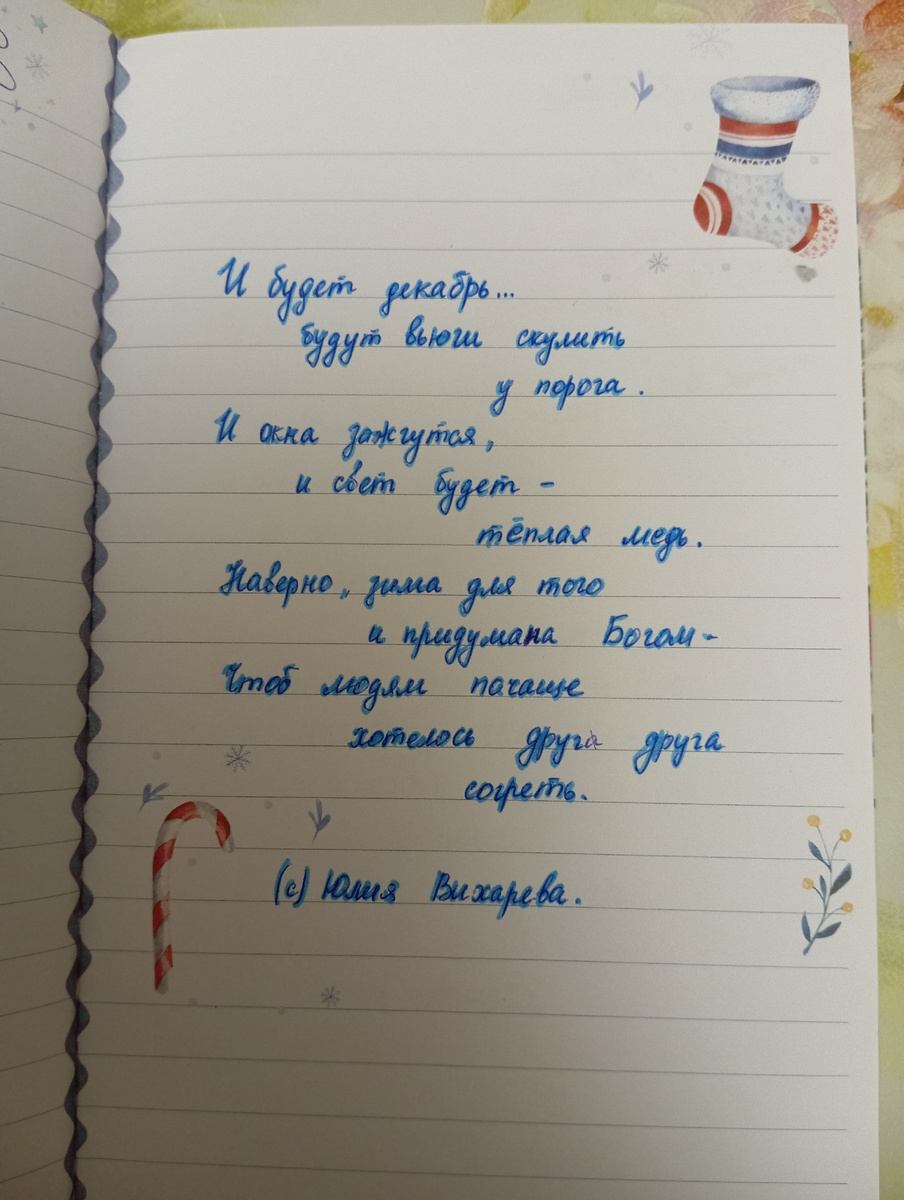 И будет декабрь...
будут вьюги скулить
у порога.
И окна зажгутся,
и свет будет -
тёплая медь.
Наверно, зима для того
и придумана Богом -
Чтоб людям почаще
хотелось друга друга
согреть.
(с) Юлия Вихарева.